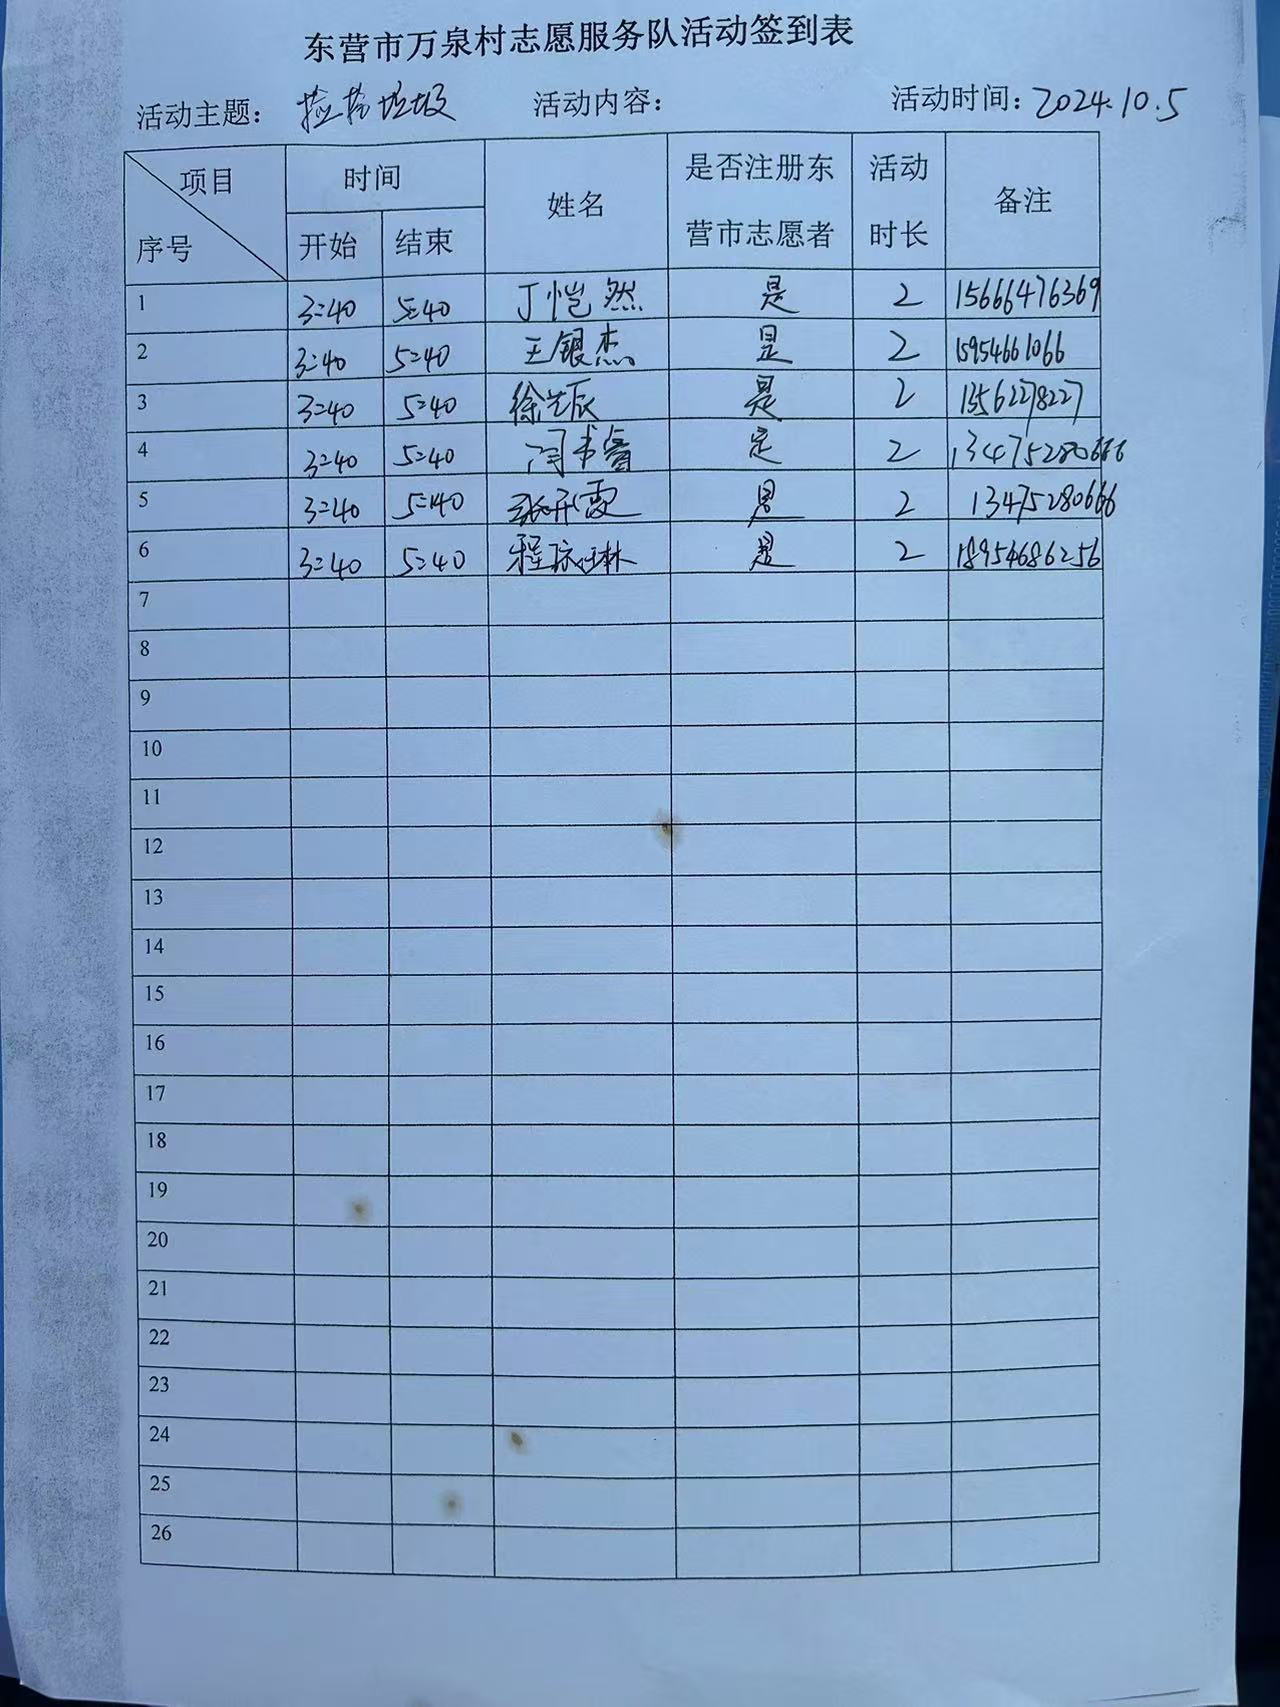 东营市万泉村志愿服务队活动签到表
活动主题： 捡拾垃圾 活动内容： 活动时间：2024.10.5
项目 时间 姓名 是否注册东营市志愿者 活动时长 备注
序号 开始 结束
1 3:40 5:40 丁恺然 是 2 15666476369
2 3:40 5:40 王银杰 是 2 15954661066
3 3:40 5:40 徐艺辰 是 2 13562278227
4 3:40 5:40 闫书睿 是 2 13475280666
5 3:40 5:40 张开霞 是 2 13475280666
6 3:40 5:40 程琳 是 2 18954686256
7
8
9
10
11
12
13
14
15
16
17
18
19
20
21
22
23
24
25
26